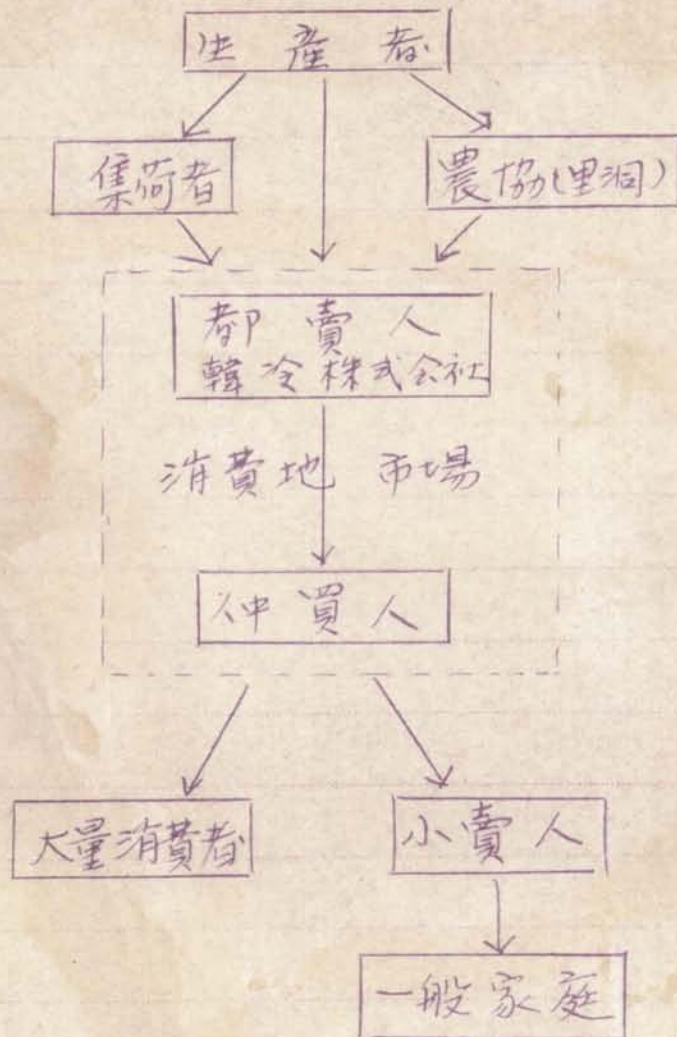 生産者
集荷者
農協(里洞)
都賣人
韓冷株式会社
消費地 市場
仲買人
大量消費者
小賣人
一般家庭